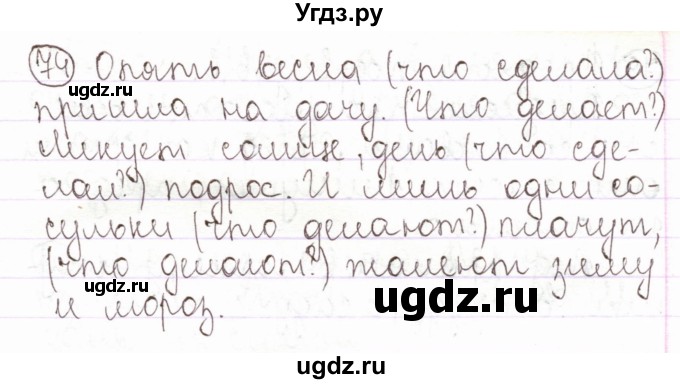 Угдз.ру
74 Опять весна (что сделала?)
ugdz.ru ugdz.ru
пришла на дачу. (Что делает?)
Ликует солнце, день (что сде-
лал?) подрос. И лишь одни со-
сульки (что делают?) плачут,
(что делают?) жалеют зиму
ugdz.ru
и мороз.
ugdz.ru
ugdz.ru